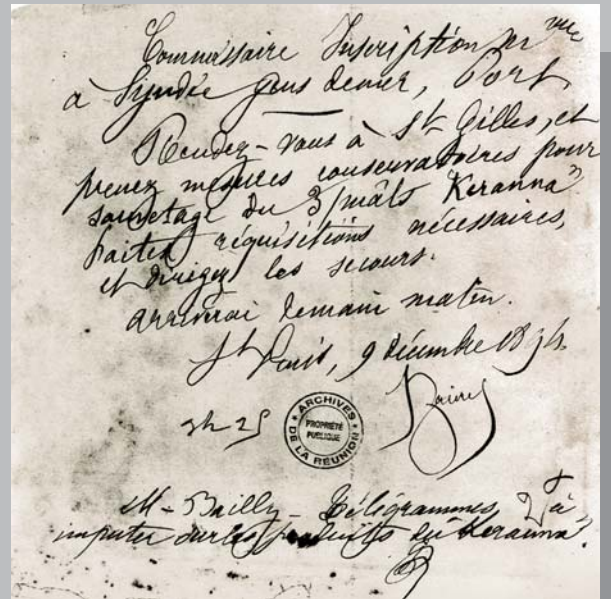 Commissaire Inscription mme
à Syndic gens de mer, Port
Rendez-vous à St Gilles, et
prenez mesures conservatoires pour
sauvetage du 3 mâts "Keranna"
Faites réquisitions nécessaires,
et dirigez les secours.
arriverai demain matin.
St Denis, 9 décembre 1894.
3h 25
ARCHIVES
DE LA RÉUNION
PROPRIÉTÉ
PUBLIQUE
M. Bailly - Télégrammes à
imputer sur les produits du "Keranna".